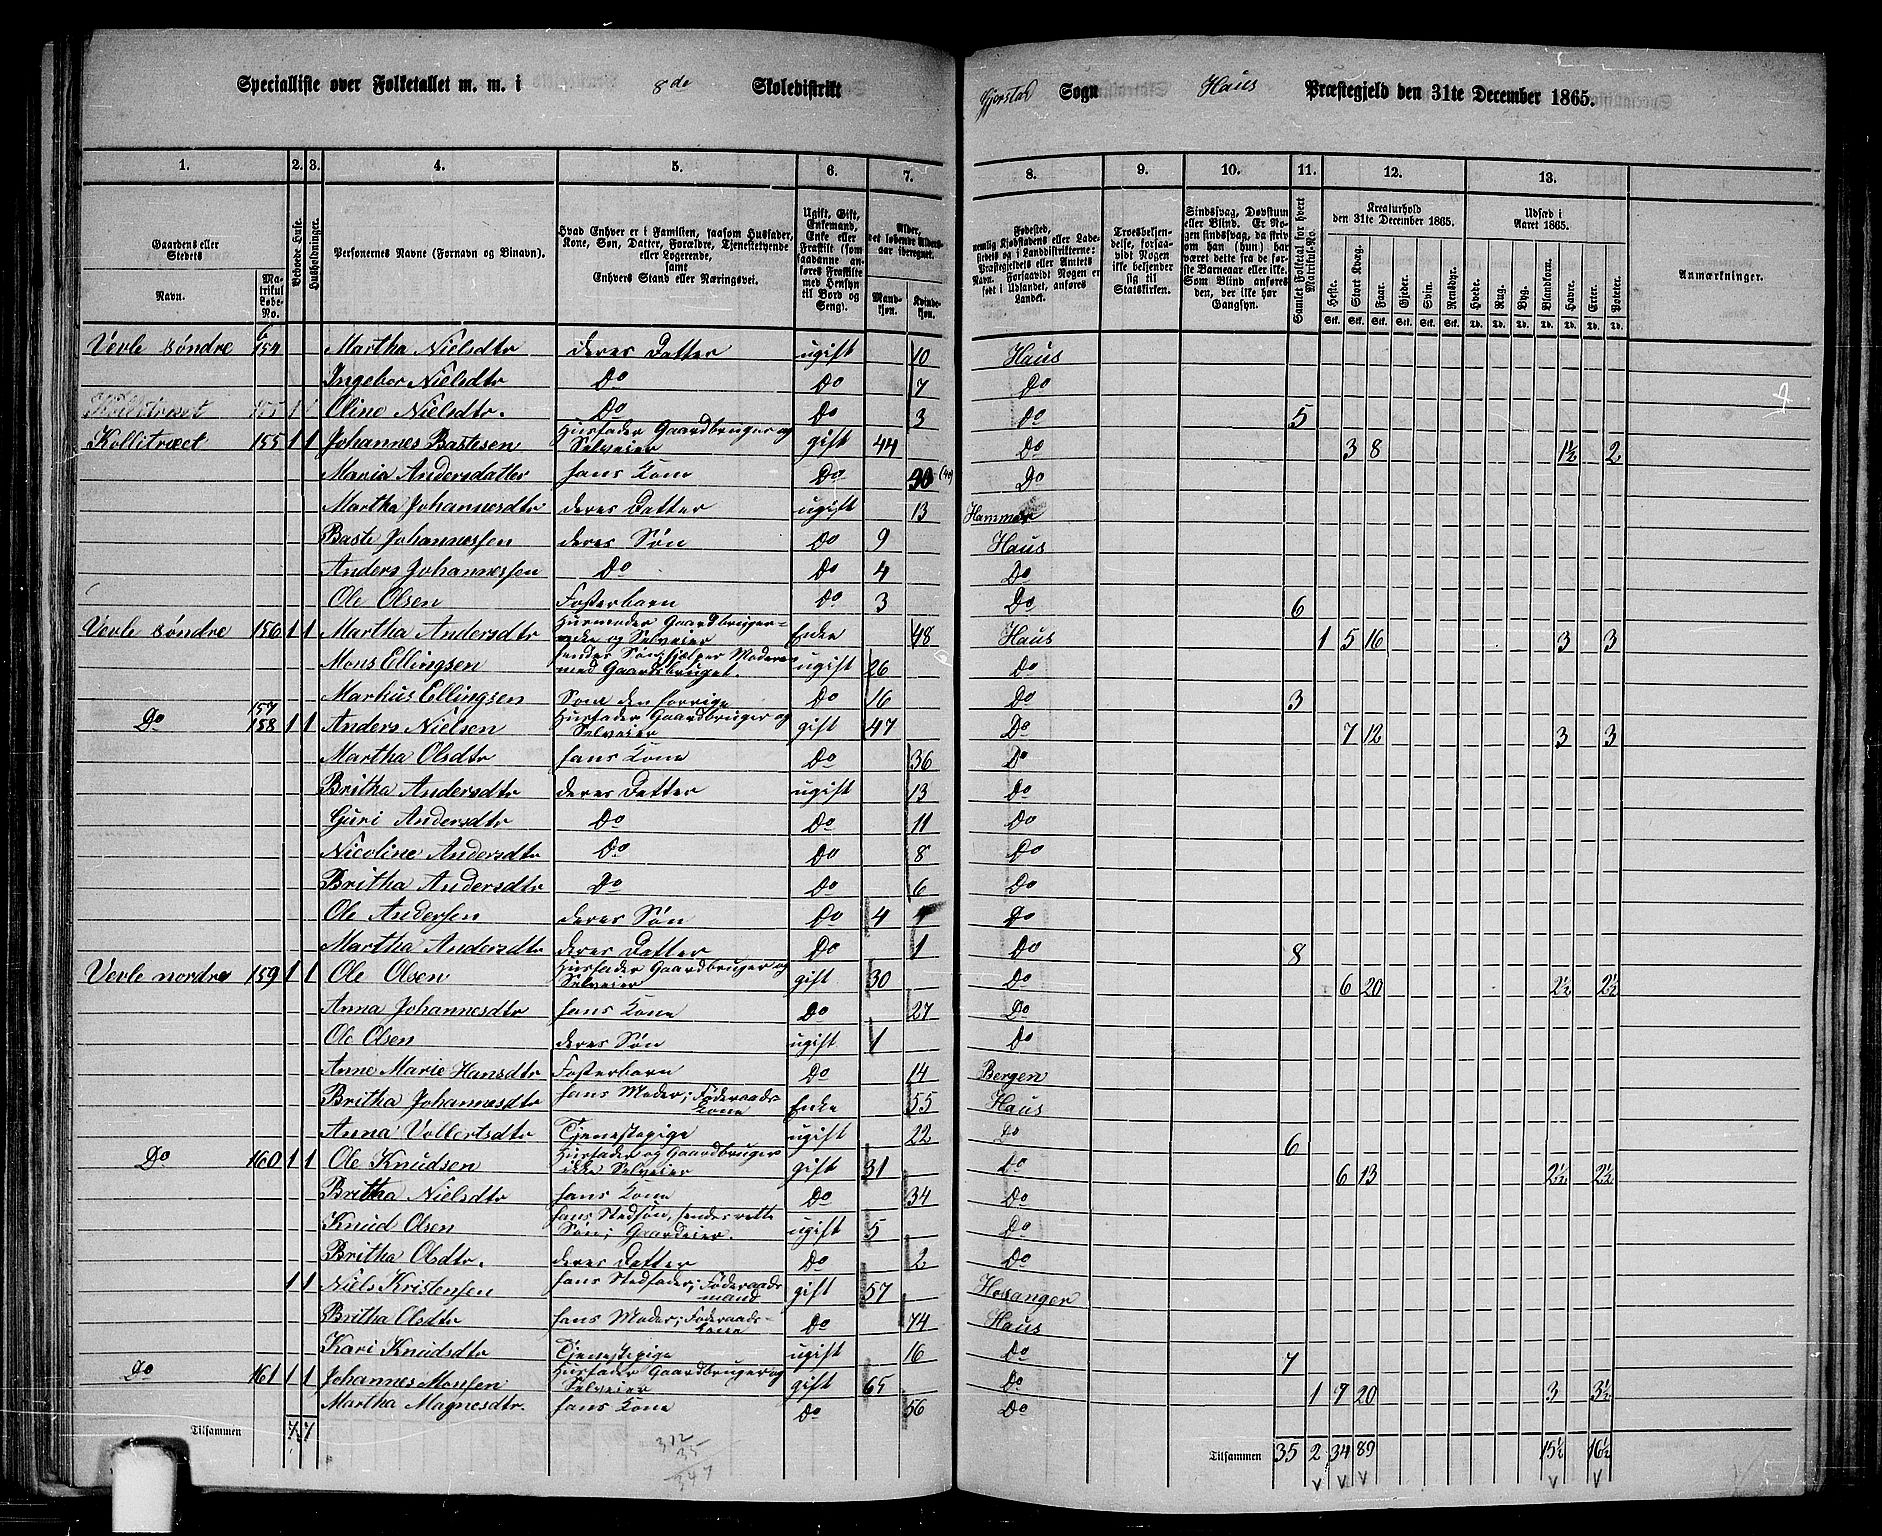 Specialliste over Folketallet m. m. i 8de Skoledistrikt Gjerstad Sogn Haus Præstegjeld den 31te December 1865.
1. 2. 3. 4. 5. 6. 7. 8. 9. 10. 11. 12. 13.
Gaardens eller Stedets Navn. Matrikul Løbe-No.
Beboede Huse. Husholdninger.
Personernes Navne (Fornavn og Binavn).
Hvad Enhver er i Familien, saasom Husfader, Kone, Søn, Datter, Forældre, Tjenestetyende eller Logerende, samt Enhvers Stand eller Næringsvei.
Ugift, Gift, Enkemand, Enke eller Fraskilt (som saadanne anføres Fraskilte med Hensyn til Bord og Seng).
Alder, det løbende Alders-aar iberegnet. Mandkjøn. Kvindekjøn.
Fødested, nemlig Kjøbstadens eller Ladestedets og i Landdistrikterne: Præstegjeldets eller Amtets Navn. Forsaavidt Nogen er født i Udlandet, anføres Landet.
Troesbekjendelse, forsaavidt Nogen ikke bekjender sig til Statskirken.
Sindssvag, Døvstum eller Blind. Er Nogen sindssvag, da skriv om han (hun) har været det fra de første Barneaar eller ikke. Som Blind anføres den, der ikke har Gangsyn.
Samlet Folketal for hvert Matrikul-No.
Kreaturhold den 31te December 1865. Heste. Stort Kvæg. Faar. Gjeder. Svin. Rensdyr.
Udsæd i Aaret 1865. Hvede. Rug. Byg. Blandkorn. Havre. Erter. Poteter.
Anmærkninger.
Vevle søndre 6 154 Martha Nielsdtr deres Datter ugift 10 Haus
Ingebor Nielsdtr Do Do 7 Do
Kollitræet 155 1 1 Oline Nielsdtr. Do Do 3 Do 5
Kollitræet 155 1 1 Johannes Bastesen Husfader Gaardbruger og Selveier gift 44 Do 3 8 1½ 2
Maria Andersdatter hans Kone Do 30 (40) Do
Martha Johannesdtr deres Datter ugift 13 Hammer
Baste Johannessen deres Søn Do 9 Haus
Anders Johannessen Do Do 4 Do
Ole Olsen Fosterbarn Do 3 Do 6
Vevle søndre 156 1 1 Martha Andersdtr Husmoder Gaardbruger-enke og Selveier Enke 48 Haus 1 5 16 3 3
Mons Ellingsen hendes Søn, hjelper Moderen med Gaardsbruget. ugift 26 Do
Markus Ellingsen Som den forrige Do 16 Do 3
Do 157 158 1 1 Anders Nielsen Husfader Gaardbruger og Selveier gift 47 Do 7 12 3 3
Martha Olsdtr hans Kone Do 36 Do
Britha Andersdtr deres Datter ugift 13 Do
Guri Andersdtr Do Do 11 Do
Nicoline Andersdtr Do Do 8 Do
Britha Andersdtr Do Do 6 Do
Ole Andersen deres Søn Do 4 Do
Martha Andersdtr deres Datter Do 1 Do 8
Vevle nordre 159 1 1 Ole Olsen Husfader Gaardbruger og Selveier gift 30 Do 6 20 2½ 2½
Anna Johannesdtr hans Kone Do 27 Do
Ole Olsen deres Søn ugift 1 Do
Anne Marie Hansdtr Fosterbarn Do 14 Bergen
Britha Johannesdtr hans Moder; Føderaads-Kone Enke 55 Haus
Anna Vollertsdtr Tjenestepige ugift 22 Do 6
Do 160 1 1 Ole Knudsen Husfader og Gaardbruger ikke Selveier gift 31 Do 6 13 2½ 2½
Britha Nielsdtr hans Kone Do 34 Do
Knud Olsen hans Stedsøn, hendes rette Søn; Gaardeier. ugift 5 Do
Britha Olsdtr. deres Datter Do 2 Do
1 1 Niels Kristensen hans Stedfader; Føderaads-mand gift 57 Hosanger
Britha Olsdtr hans Moder; Føderaads-kone Do 74 Haus
Kari Knudsdtr Tjenestepige ugift 16 Do 7
Do 161 1 1 Johannes Monsen Husfader Gaardbruger og Selveier gift 65 Do 1 7 20 3 3½
Martha Magnesdtr. hans Kone Do 56 Do
Tilsammen 7 7 Tilsammen 35 2 34 89 15½ 16½
312
35
347